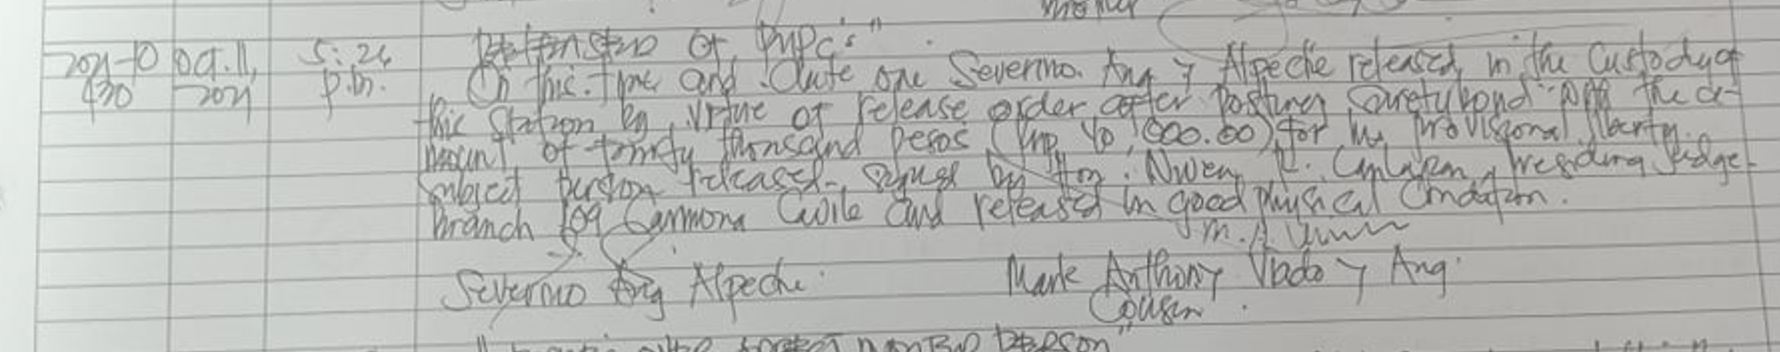 mother
2021-10 Oct. 11, 5:24 of PUPC's"
430 2021 p.m. On this time and date one Severino Ang y Alpeche released in the Custody of
this Station by virtue of release order after posting Surety bond the a-
mount of thousand pesos (Php 40,000.00) for his provisional liberty.
Subject person released signed by Hon. , Presiding Judge
Branch 109 Carmona Cavite and released in good physical Condition.
Severino Ang Alpeche Mark Anthony Viado y Ang
Cousin
person"